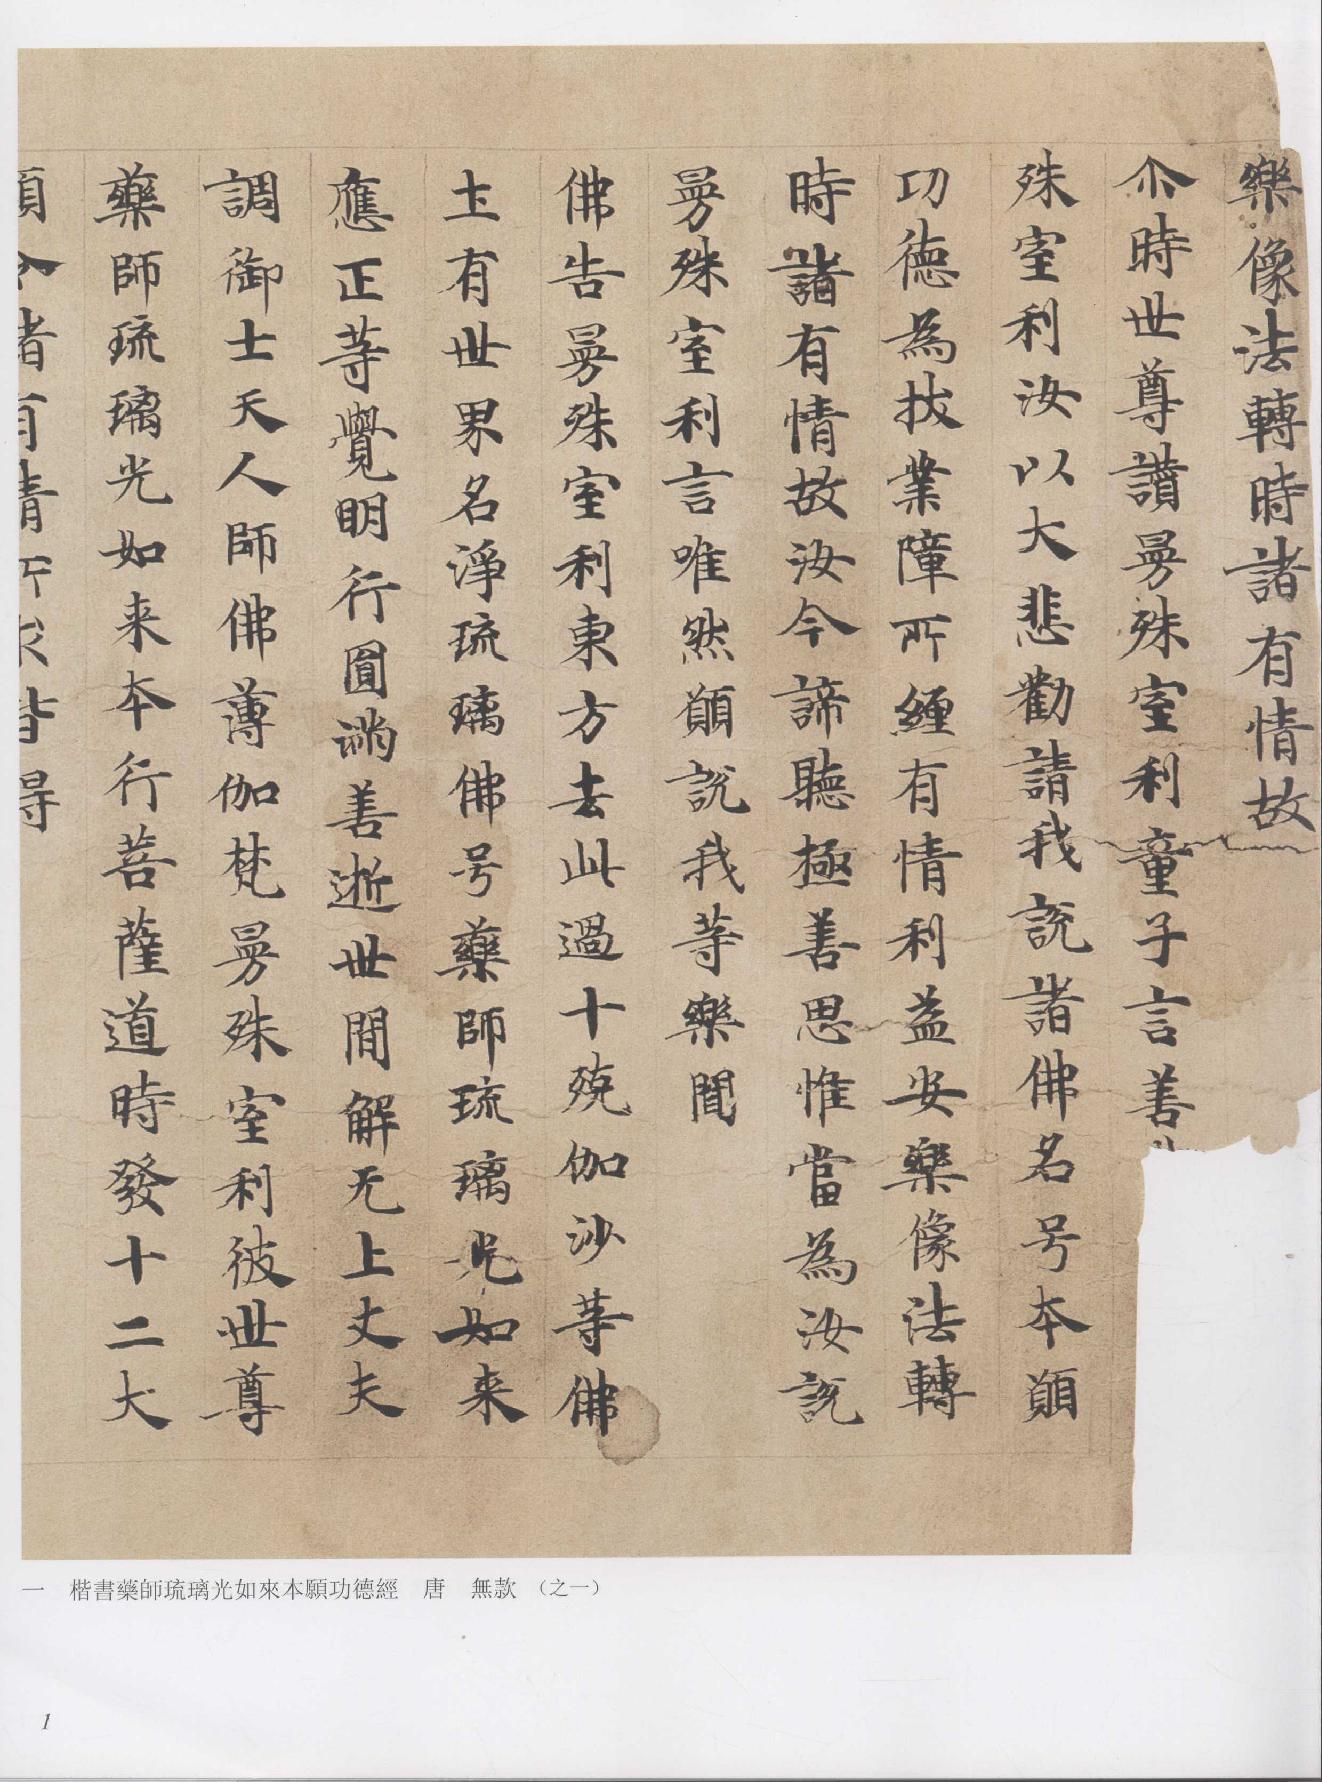 樂像法轉時諸有情故
尒時世尊讚曼殊室利童子言善
殊室利汝以大悲勸請我說諸佛名号本願
功德為拔業障所纏有情利益安樂像法轉
時諸有情故汝今諦聽極善思惟當為汝說
曼殊室利言唯然願說我等樂聞
佛告曼殊室利東方去此過十殑伽沙等佛
土有世界名淨琉璃佛号藥師琉璃光如来
應正等覺明行圓滿善逝世間解无上丈夫
調御士天人師佛薄伽梵曼殊室利彼世尊
藥師琉璃光如来本行菩薩道時發十二大
願令諸有情所求皆得
一 楷書藥師琉璃光如來本願功德經 唐 無款 （之一）
1